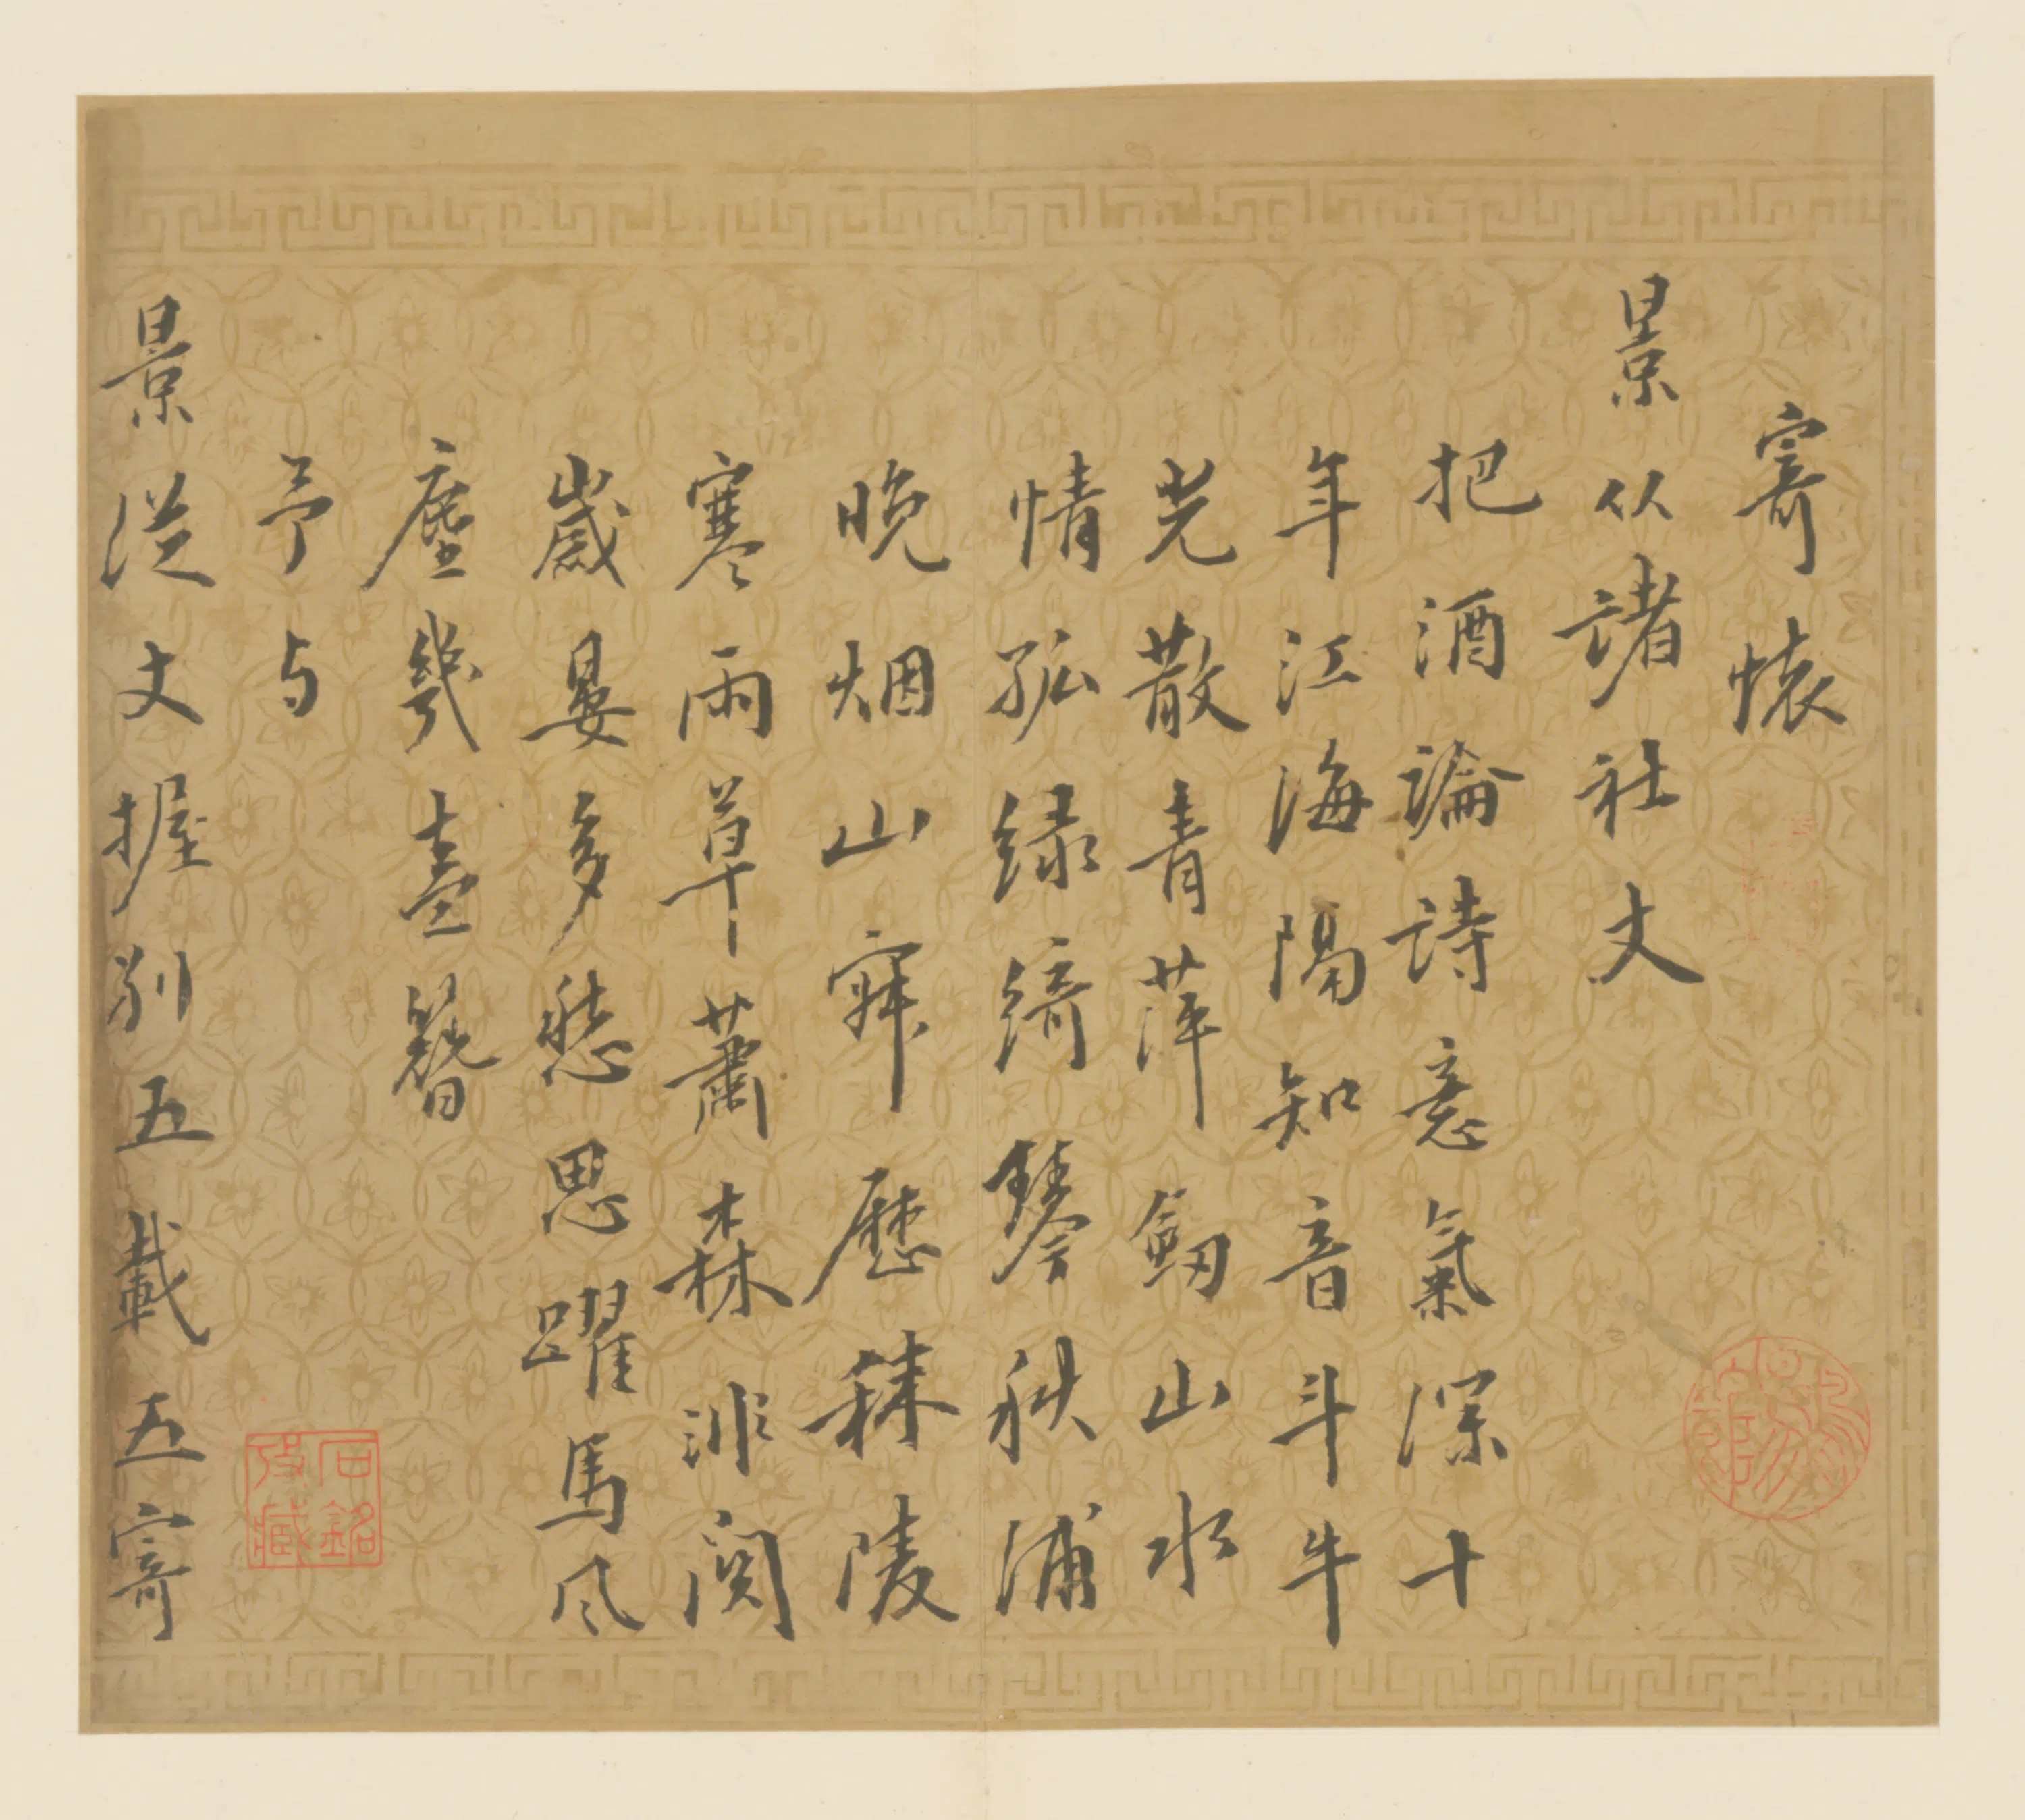 寄懷
景从諸社丈
把酒論詩意氣深十
年江海隔知音斗牛
光散青萍劒山水
情孤绿綺琴秋浦
晚烟山寂歷秣陵
寒雨草蕭森淝閒
歲晏多愁思躍馬風
塵幾盍簪
予与
景從丈握别五載五寄
石銘
收藏